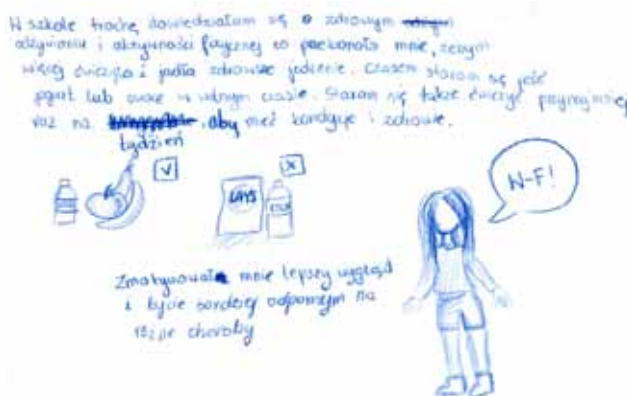 W szkole trochę dowiedziałam się o zdrowym
odżywianiu i aktywności fizycznej co przekonało mnie, żebym
więcej ćwiczyła i jadła zdrowsze jedzenie. Czasem staram się jeść
jogurt lub owoce w wolnym czasie. Staram się także ćwiczyć przynajmniej
raz na aby mieć kondycję i zdrowie.
tydzień
V
X
LAYS
W-F!
Zmotywował mnie lepszy wygląd
i bycie bardziej odpornym na
różne choroby